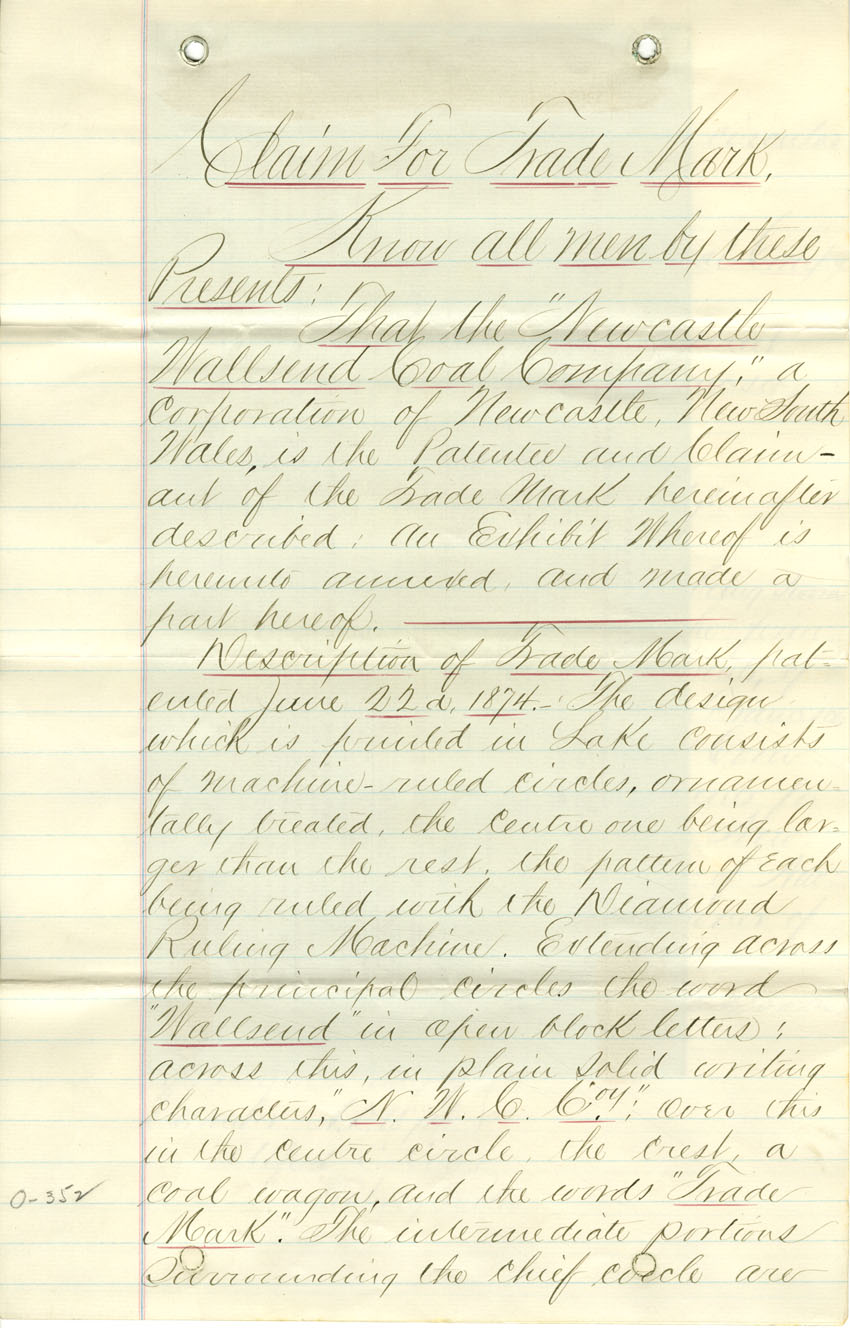 Claim For Trade Mark.
Know all men by these
Presents:
That the "Newcastle
Wallsend Coal Company," a
corporation of Newcastle, New South
Wales, is the Patentee and Claim-
ant of the Trade Mark hereinafter
described: An Exhibit Whereof is
hereunto annexed, and made a
part hereof.
Description of Trade Mark, pat-
ented June 22d, 1874.- The design
which is printed in Lake consists
of machine-ruled circles, ornamen-
tally treated, the centre one being lar-
ger than the rest, the pattern of Each
being ruled with the Diamond
Ruling Machine. Extending across
the principal circles the word
"Wallsend" in open block letters;
across this, in plain solid writing
characters, "N. W. C. Coy."; over this
in the centre circle, the crest, a
coal wagon, and the words "Trade
Mark". The intermediate portions
Surrounding the chief circle are
0-352